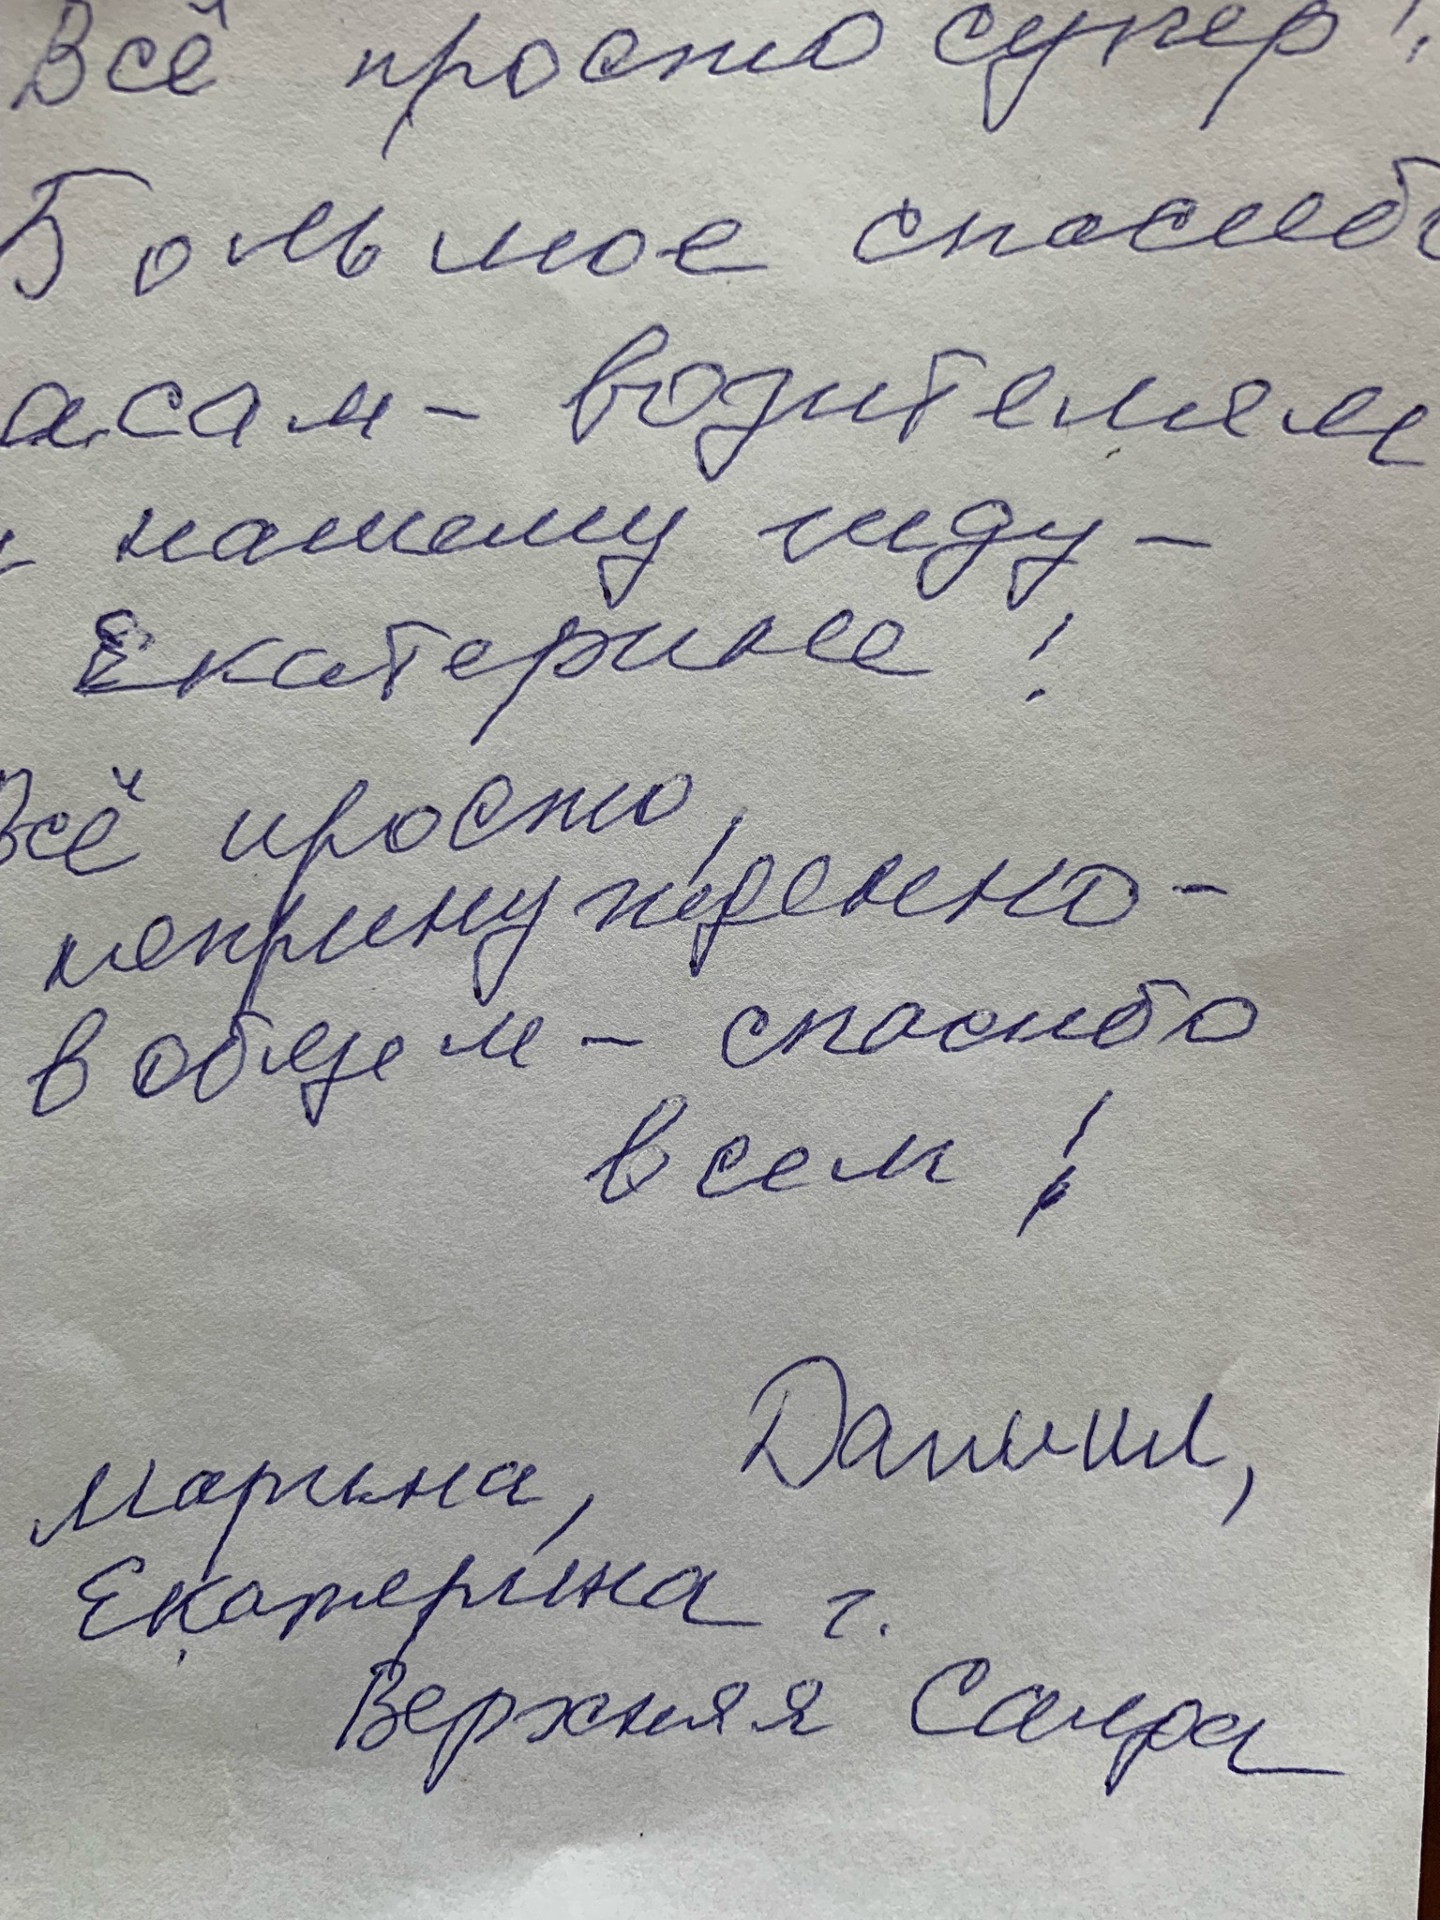 Всё просто супер!
Большое спасибо
асам - водителям
и нашему гиду -
Екатерине!
Всё просто,
непринужденно -
в общем - спасибо
всем!
Даниил,
Марина,
Екатерина г.
Верхняя Салда